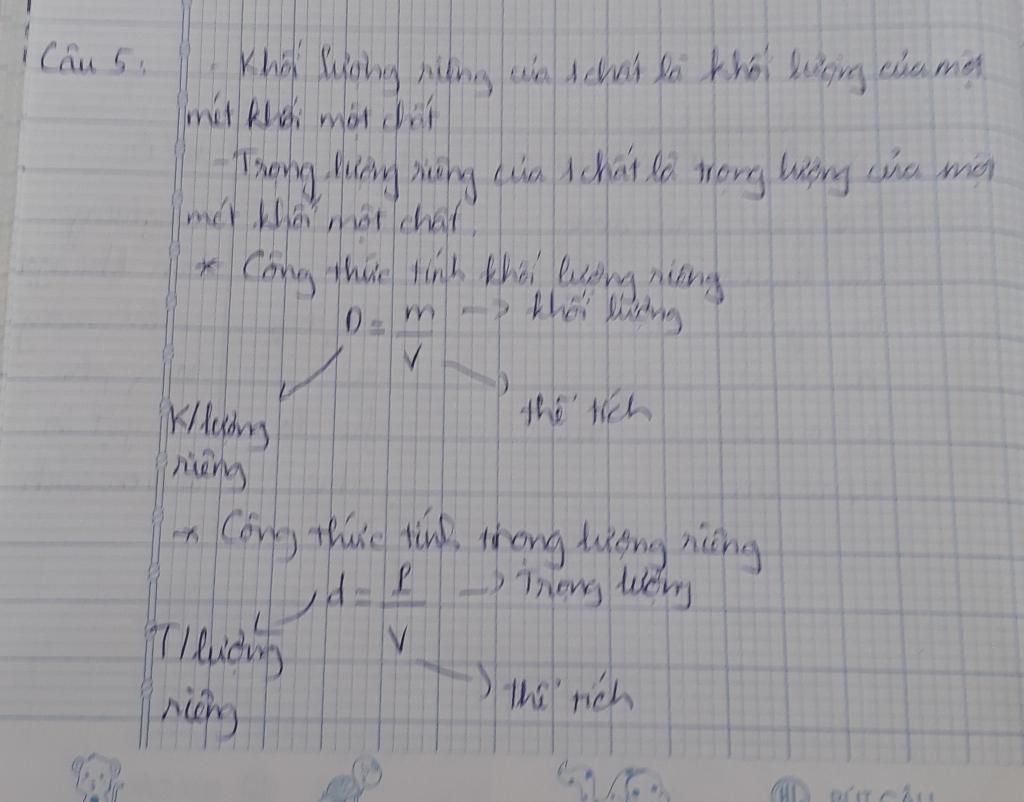 Câu 5: - Khối lượng riêng của 1 chất là khối lượng của một
mét khối một chất
- Trọng lượng riêng của 1 chất là trọng lượng của một
mét khối một chất.
* Công thức tính khối lượng riêng
D = m/V → khối lượng
thể tích
K/lượng
riêng
* Công thức tính trọng lượng riêng
d = P/V → Trọng lượng
T/lượng
riêng
thể tích